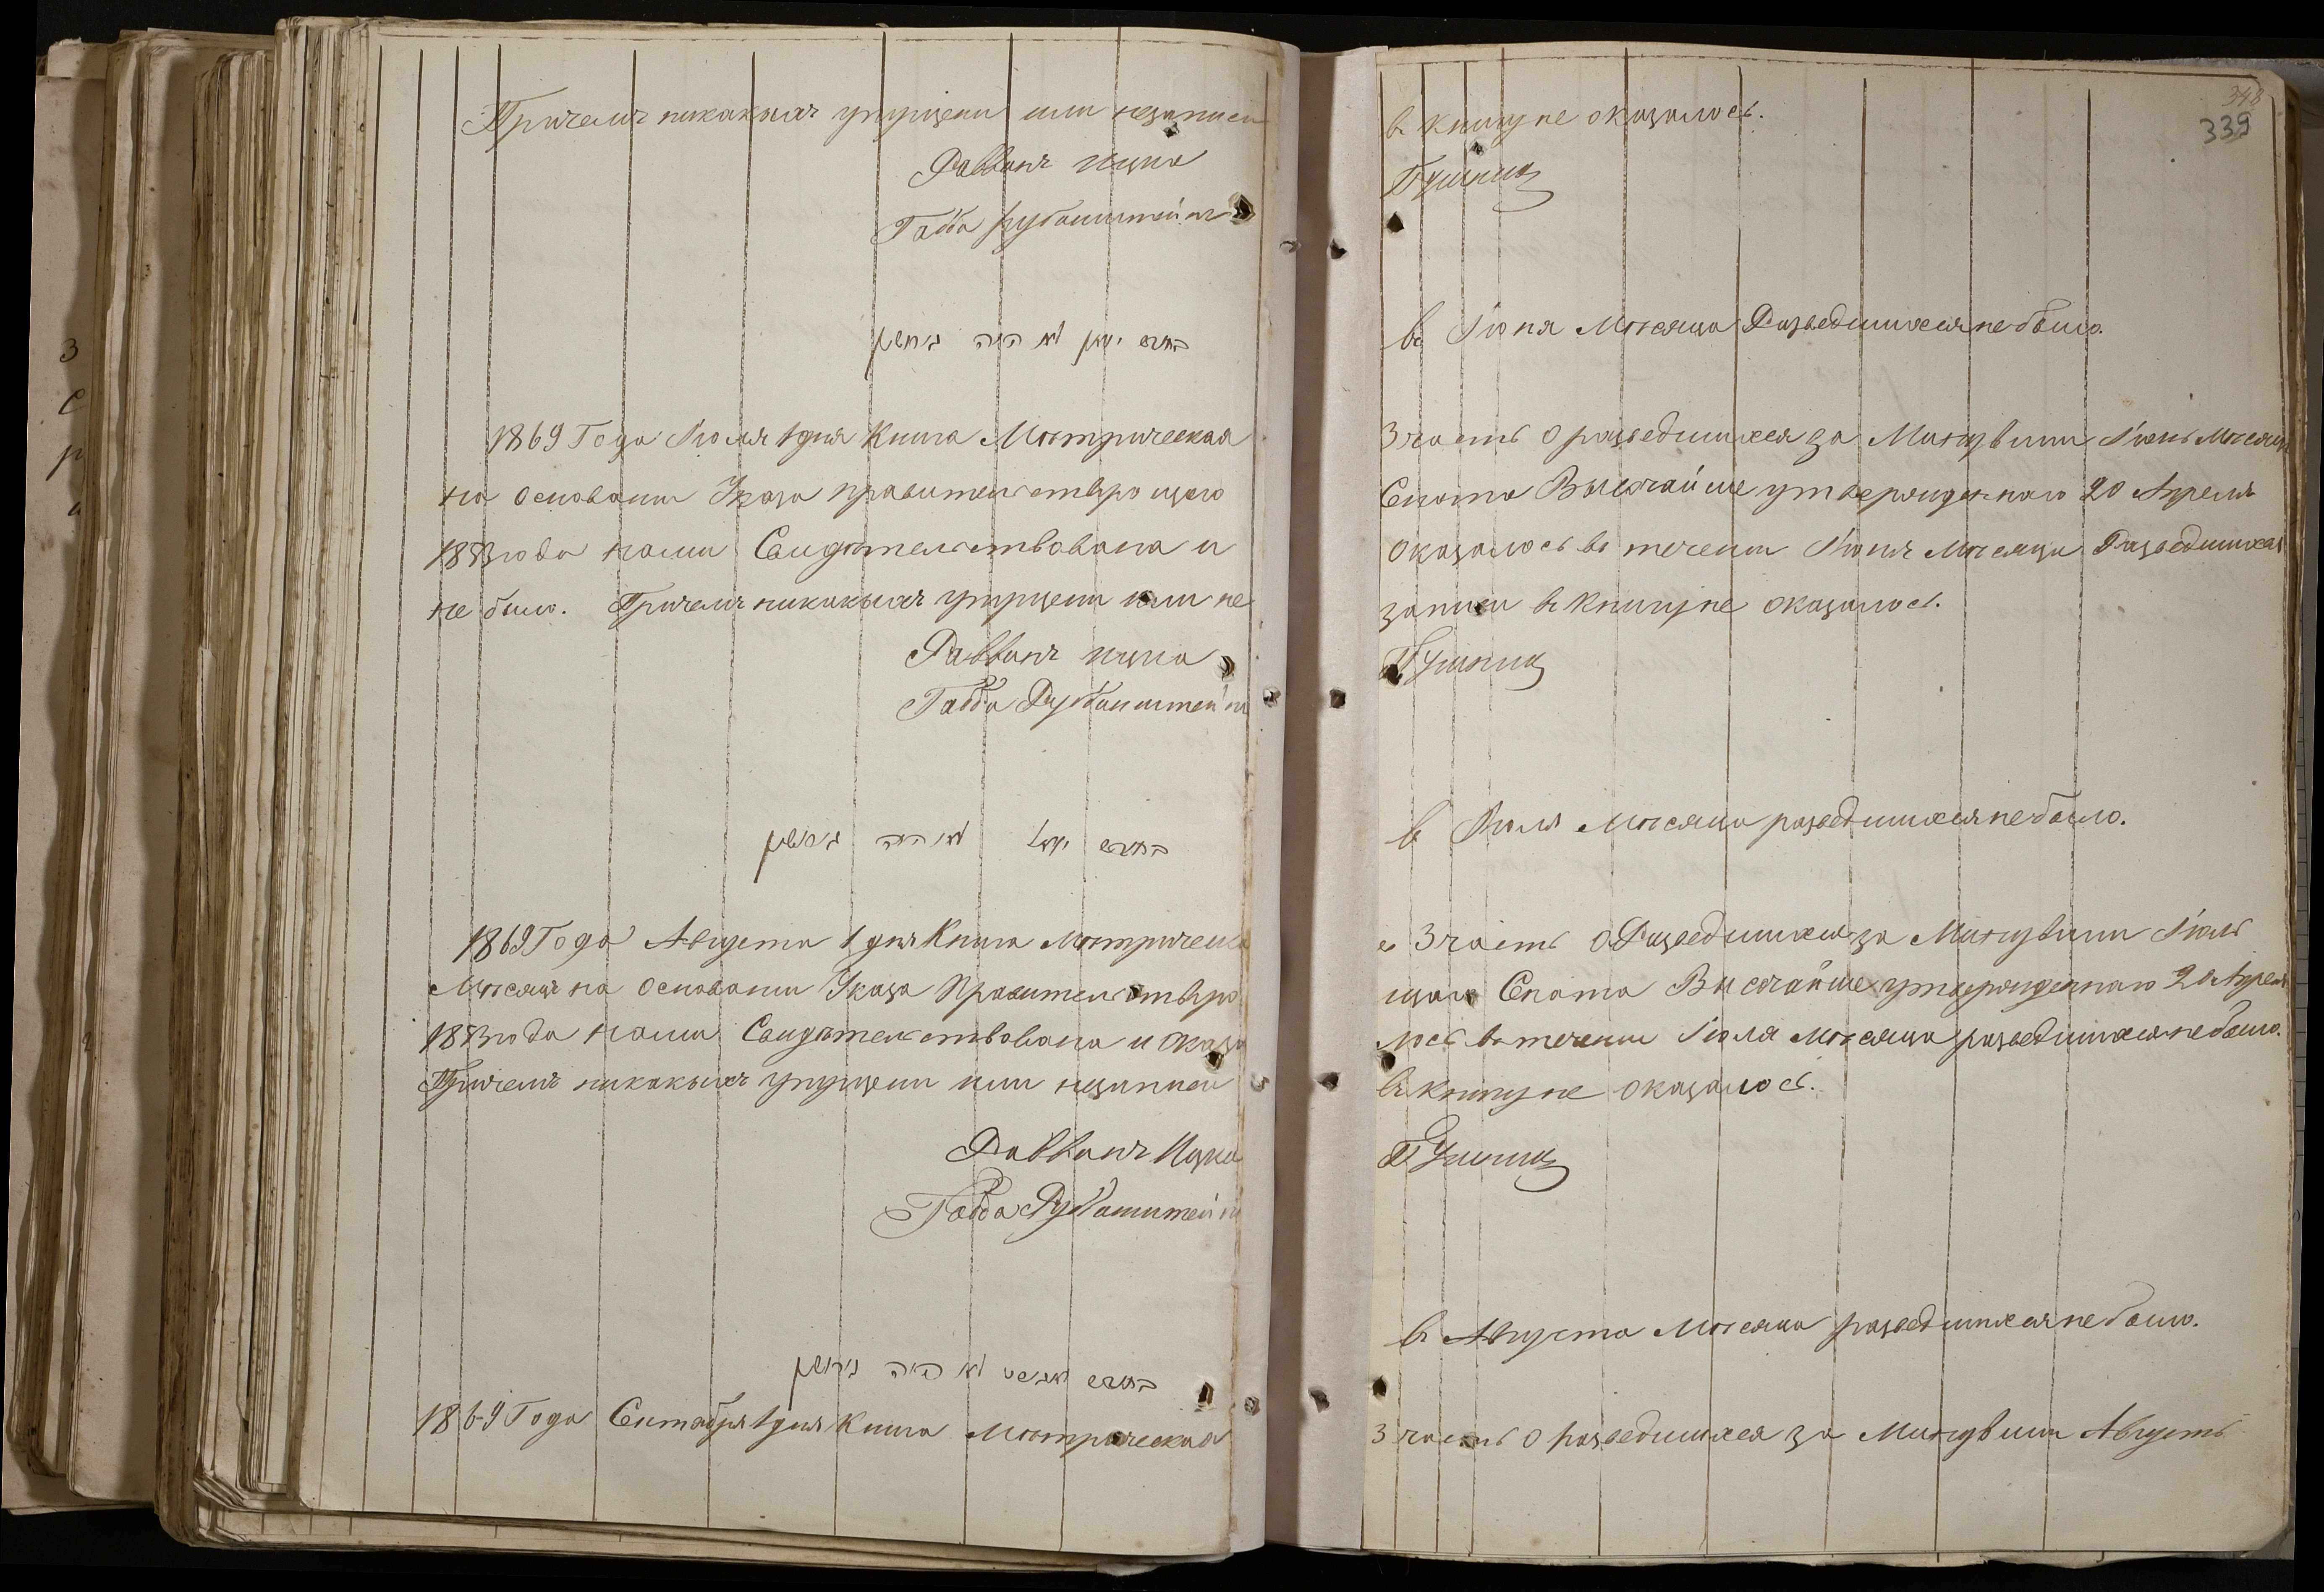 Причемъ никакихъ упущени или незаписи
Раввинъ Ицко
Габа Рубанштейнъ
בחודש יוני לא היה גירושין
1869 Года Июля 1 дня Книга Метрическая
на основании Указа правительствующего
1883 года нами Свидетельствована и
не было. Причемъ никакихъ упущени или не
Раввинъ Ицко
Габа Рубанштейнъ
בחודש יולי לא היה גירושין
1869 Года Августа 1 дня Книга Метрическа
Месяцъ на основании Указа Правительствую
1883 года нами Свидетельствована и оказа
Причемъ никакихъ упущени или незаписи
Раввинъ Ицко
Габа Рубанштейнъ
בחודש אווגוסט לא היה גירושין
1869 Года Сентабря 1 дня Книга Метрическая
348
339
въ книгу не оказалось.
въ Июня Месяца Разведшихся не было.
3 часть о разведшихся за Минувши Июнь Месяцъ
Сената Высочайше утвержденнаго 20 Апреля
оказалось въ течении Июня месяца Разведшихся
записи въ книгу не оказалось.
въ Июля Месяца разведшихся не было.
я 3 часть о Разведшихся за Минувши Июль
щаго Сената Высочайше утвержденнаго 20 Апреля
лось въ течении Июля месяца разведшихся не было.
въ книгу не оказалось.
въ Августа Месяца разведшихся не было.
3 часть о разведшихся за Минувши Августъ